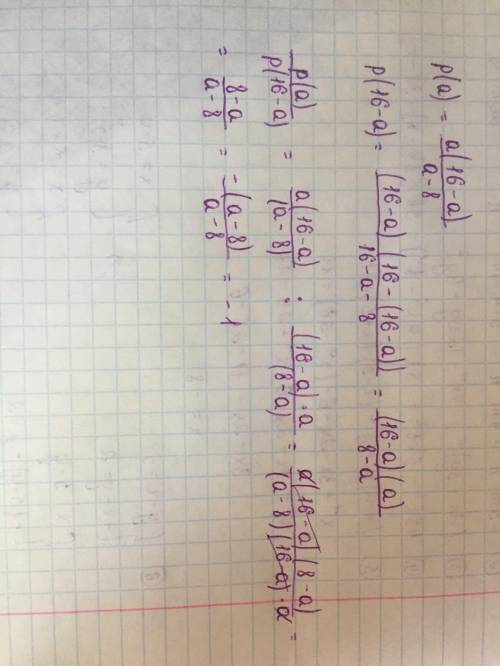 p(a) = a(16-a)/a-8
p(16-a) = (16-a)(16-(16-a))/16-a-8 = (16-a)(a)/8-a
p(a)/p(16-a) = a(16-a)/(a-8) : (16-a)·a/(8-a) = a(16-a)(8-a)/(a-8)(16-a)·a =
= 8-a/a-8 = -(a-8)/a-8 = -1